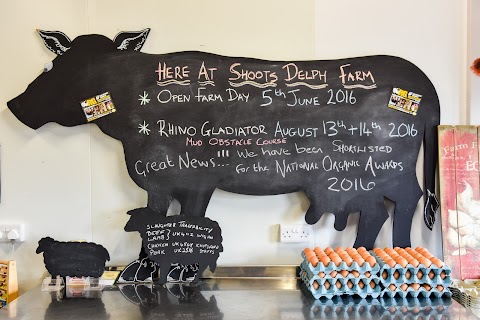 HERE AT SHOOTS DELPH FARM
* OPEN FARM DAY 5th JUNE 2016
* RHINO GLADIATOR AUGUST 13th + 14th 2016
MUD OBSTACLE COURSE
GREAT NEWS...!!! We have been SHORTLISTED
for the NATIONAL ORGANIC AWARDS
2016
SLAUGHTER TRACEABILITY
BEEF }
LAMB }
CHICKEN
PORK
Farm F